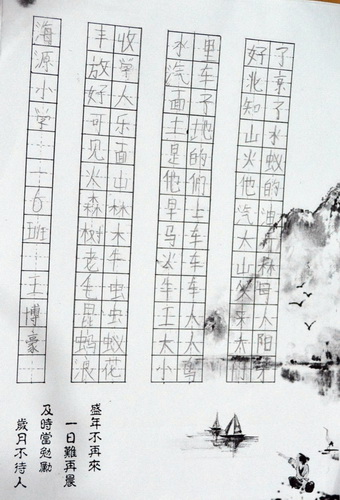 好了
北京
知子
山水
火蚁
他的
汽油
大
山森
父母
乐人
太阳
竹子
水里
汽车
面子
土地
是的
他们
早上
马车
火车
牛车
王太
大太
小鸟
丰收
放学
好人
可乐
见面
火山
森林
树木
老牛
毛虫
昆虫
蚂蚁
浪花
海源小学一一6班王博豪
盛年不再來
一日難再晨
及時當勉勵
歲月不待人